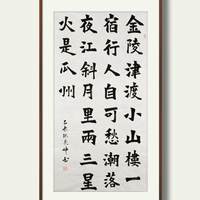 金陵津渡小山樓一
宿行人自可愁潮落
夜江斜月里兩三星
火是瓜州